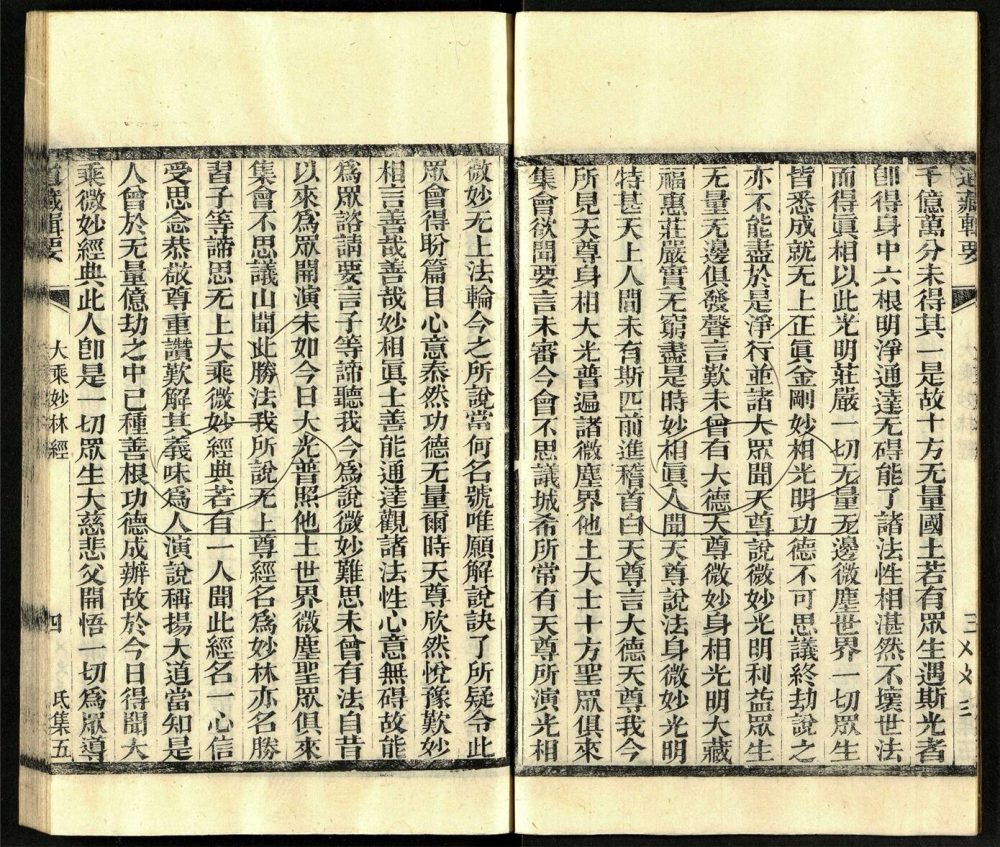 道藏輯要
三
千億萬分未得其一是故十方无量國土若有眾生遇斯光者
卽得身中六根明淨通達无碍能了諸法性相湛然不壞世法
而得眞相以此光明莊嚴一切无量无邊微塵世界一切眾生
皆悉成就无上正眞金剛妙相光明功德不可思議終劫說之
亦不能盡於是淨行並諸大眾聞天尊說微妙光明利益眾生
无量无邊俱發聲言歎未曾有大德天尊微妙身相光明大藏
福惠莊嚴實无窮盡是時妙相眞人聞天尊說法身微妙光明
特甚天上人間未有斯匹前進稽首白天尊言大德天尊我今
所見天尊身相大光普遍諸微塵界他土大士十方聖眾俱來
集會欲聞要言未審今會不思議城希所常有天尊所演光相
微妙无上法輪今之所說當何名號唯願解說訣了所疑令此
眾會得盼篇目心意泰然功德无量爾時天尊欣然悅豫歎妙
相言善哉善哉妙相眞士善能通達觀諸法性心意無碍故能
爲眾諮請要言子等諦聽我今爲說微妙難思未曾有法自昔
以來爲眾開演未如今日大光普照他土世界微塵聖眾俱來
集會不思議山聞此勝法我所說无上尊經名爲妙林亦名勝
習子等諦思无上大乘微妙經典若有一人聞此經名一心信
受思念恭敬尊重讚歎解其義味爲人演說稱揚大道當知是
人曾於无量億劫之中已種善根功德成辦故於今日得聞大
乘微妙經典此人卽是一切眾生大慈悲父開悟一切爲眾導
道藏輯要
大乘妙林經
四
氐集五